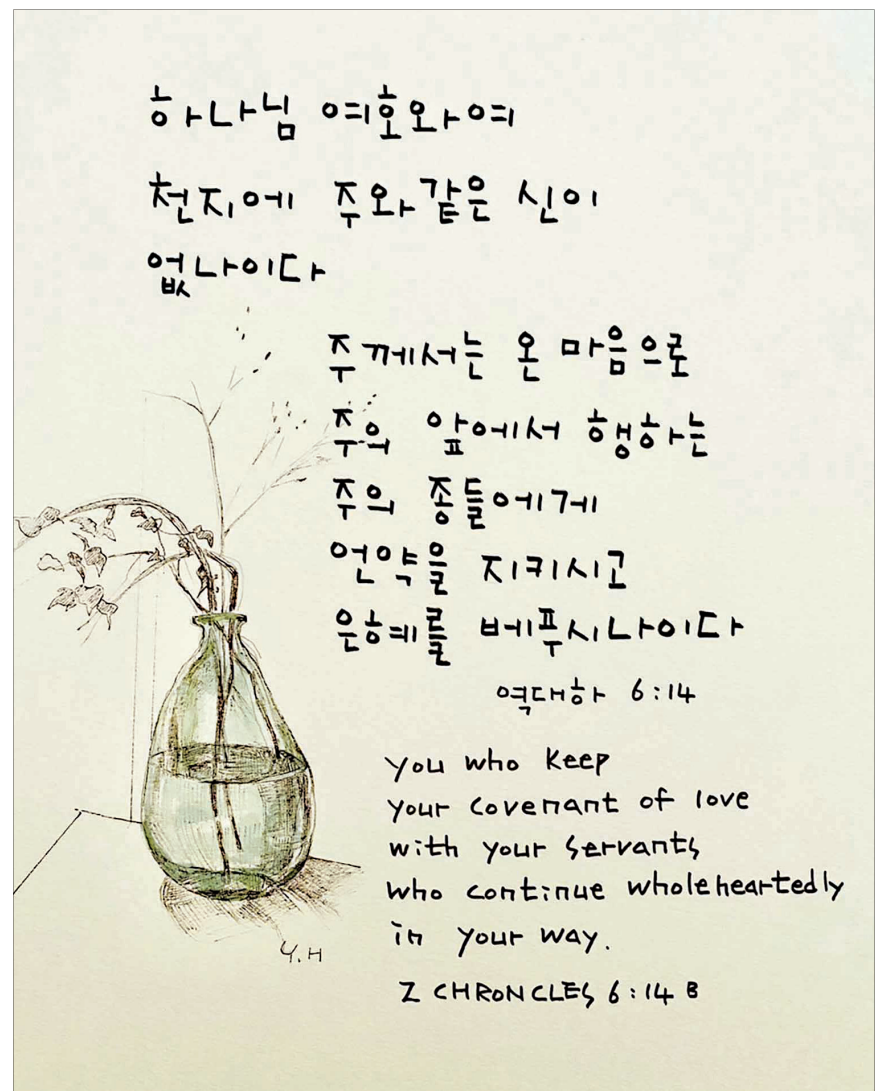 하나님 여호와여
천지에 주와같은 신이
없나이다
주께서는 온 마음으로
주의 앞에서 행하는
주의 종들에게
언약을 지키시고
은혜를 베푸시나이다
역대하 6:14
you who keep
your covenant of love
with your servants
who continue wholeheartedly
in your way.
2 CHRONCLES 6:14 B
Y.H